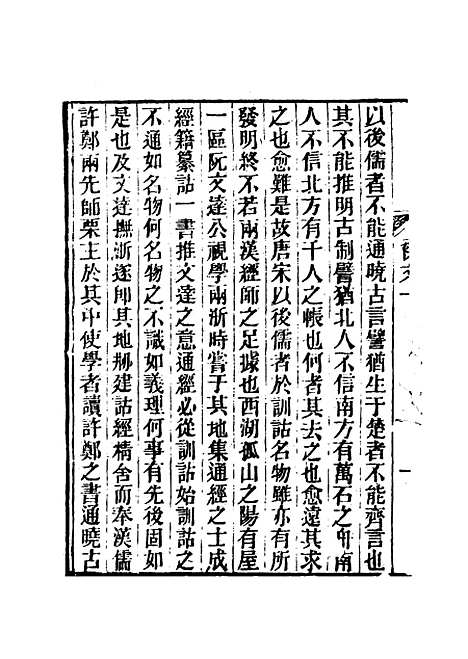 以後儒者不能通曉古言譬猶生于楚者不能齊言也
其不能推明古制譬猶北人不信南方有萬石之舟南
人不信北方有千人之帳也何者其去之也愈遠其求
之也愈難是故唐宋以後儒者於訓詁名物雖亦有所
發明終不若兩漢經師之足據也西湖孤山之陽有屋
一區阮文達公視學兩浙時嘗于其地集通經之士成
經籍纂詁一書推文達之意通經必從訓詁始訓詁之
不通如名物何名物之不識如義理何事有先後固如
是也及文達撫浙遂即其地剏建詁經精舍而奉漢儒
許鄭兩先師栗主於其中使學者讀許鄭之書通曉古